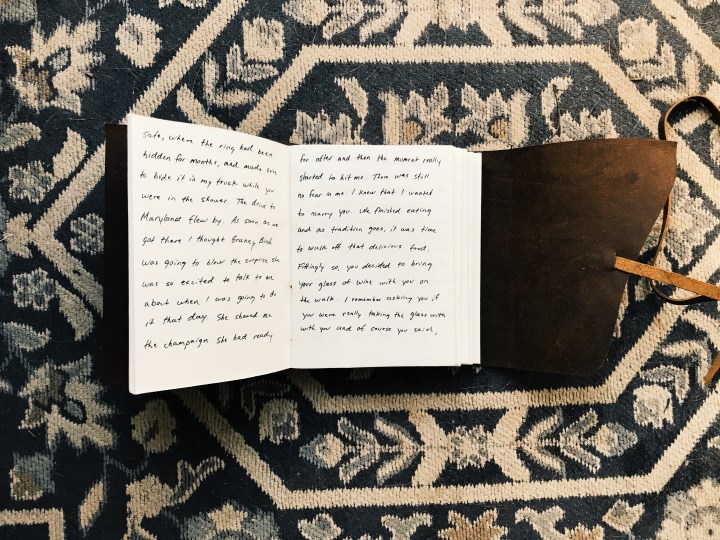 safe, where the ring had been
hidden for months, and made sure
to hide it in my truck while you
were in the shower. The drive to
Maryland flew by. As soon as we
got there I thought Granny Barb
was going to blow the surprise she
was so excited to talk to me
about when I was going to do
it that day. She showed me
the champaign she had ready
for after and then the moment really
started to hit me. There was still
no fear in me. I knew that I wanted
to marry you. We finished eating
and as tradition goes, it was time
to walk off that delicious food.
Fittingly so, you decided to bring
your glass of wine with you on
the walk. I remember asking you if
you were really taking the glass with
with you and of course you said,